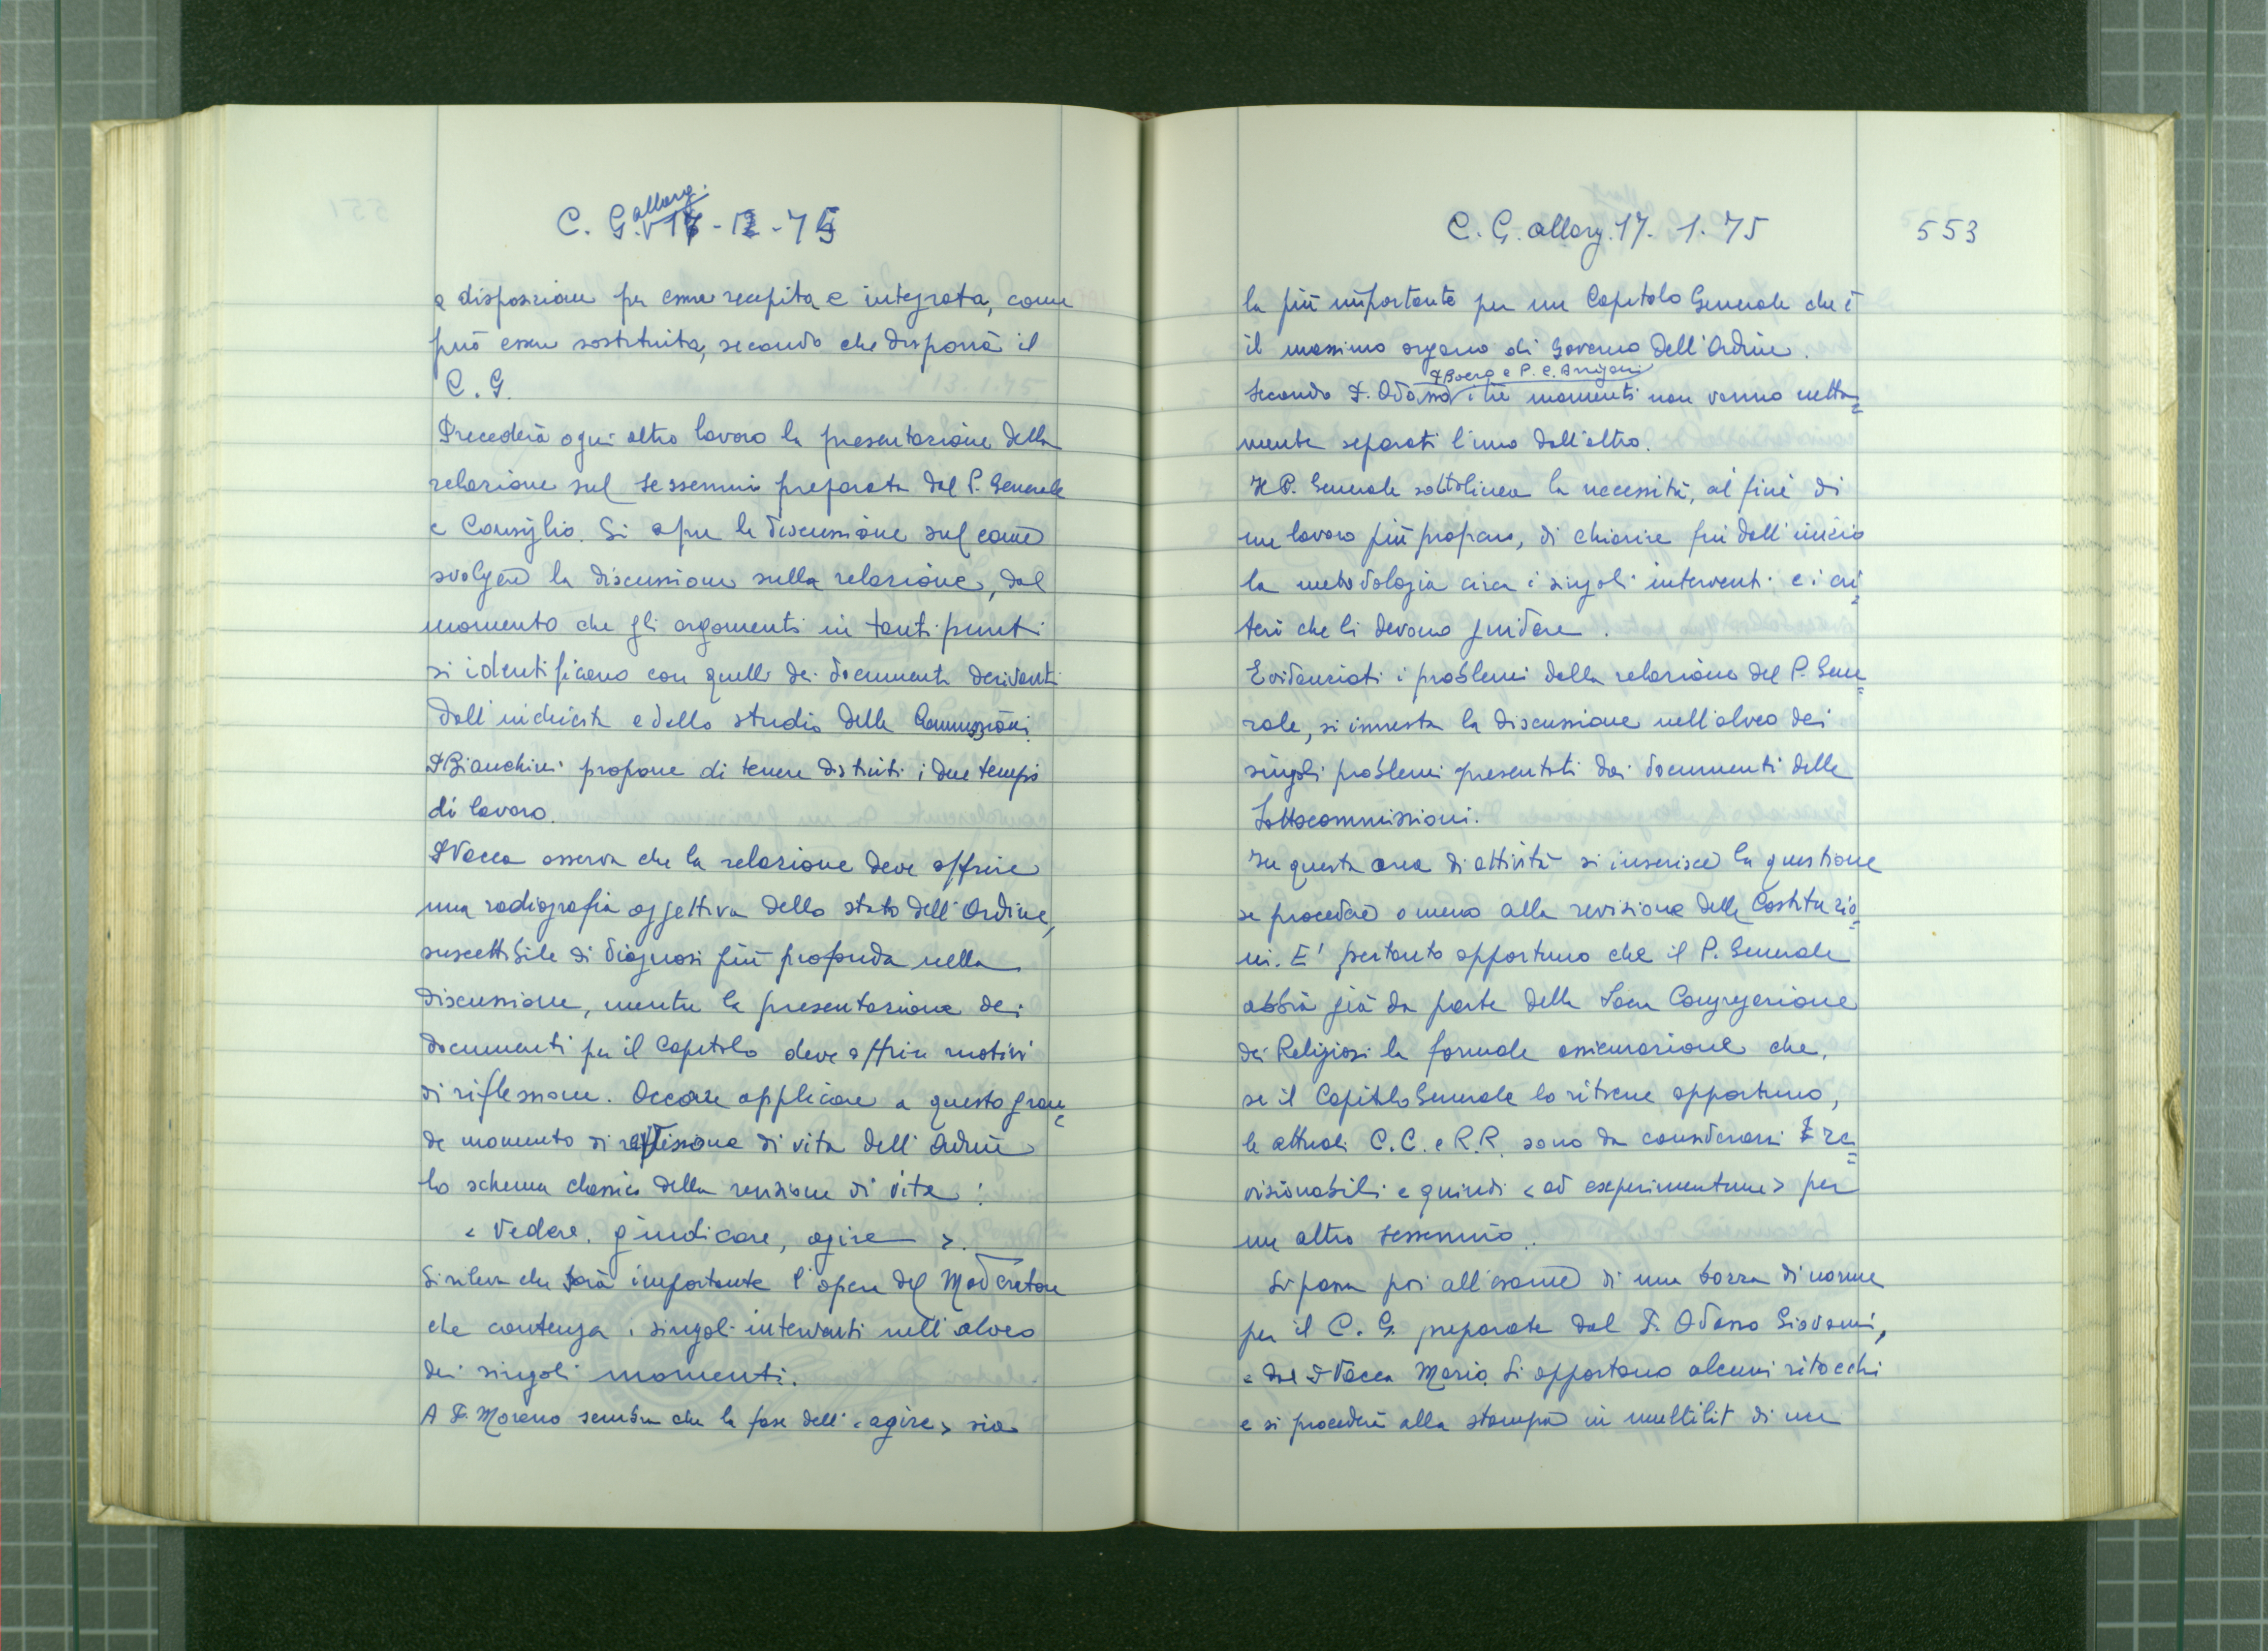 C. G. allarg. 17-1-75
a disposizione per essere recepita e integrata, come
può essere sostituita, secondo che disporrà il
C. G.
Precederà ogni altro lavoro la presentazione della
relazione sul sessennio preparata dal P. Generale
e Consiglio. Si apre la discussione sul come
svolgere la discussione sulla relazione, dal
momento che gli argomenti in tanti punti
si identificano con quelli dei documenti derivanti
dall'inchiesta e dallo studio delle Commissioni.
P. Bianchini propone di tenere distinti i due tempi
di lavoro.
P. Vacca osserva che la relazione deve offrire
una radiografia oggettiva dello stato dell'Ordine,
suscettibile di diagnosi più profonda nella
discussione, mentre la presentazione dei
documenti per il Capitolo deve offrire motivi
di riflessione. Occorre applicare a questo gran=
de momento di riflessione di vita dell'Ordine
lo schema classico della revisione di vita:
< Vedere, giudicare, agire >.
Si rileva che sarà importante l'opera del Moderatore
che contenga i singoli interventi nell'alveo
dei singoli momenti.
A P. Moreno sembra che la fase dell'<agire> sia
C. G. allarg. 17. 1. 75
553
la più importante per un Capitolo Generale che è
il massimo organo di Governo dell'Ordine.
P. Boero e P. C. Arrigoni
Secondo P. Odasso i tre momenti non vanno netta=
mente separati l'uno dall'altro.
Il P. Generale sottolinea la necessità, al fine di
un lavoro più proficuo, di chiarire fin dall'inizio
la metodologia circa i singoli interventi e i cri=
teri che li devono guidare.
Evidenziati i problemi dalla relazione del P. Gene=
rale, si innesta la discussione nell'alveo dei
singoli problemi presentati dai documenti delle
Sottocommissioni.
In questa area di attività si inserisce la questione
se procedere o meno alla revisione delle Costituzio=
ni. E' pertanto opportuno che il P. Generale
abbia già da parte della Sacra Congregazione
dei Religiosi la formale assicurazione che,
se il Capitolo Generale lo ritiene opportuno,
le attuali C.C. e R.R. sono da considerarsi re=
visionabili e quindi <ad experimentum> per
un altro sessennio.
Si passa poi all'esame di una bozza di norme
per il C. G. preparate dal P. Odasso Giovanni,
e dal P. Vacca Mario. Si apportano alcuni ritocchi
e si procederà alla stampa in multilit di un